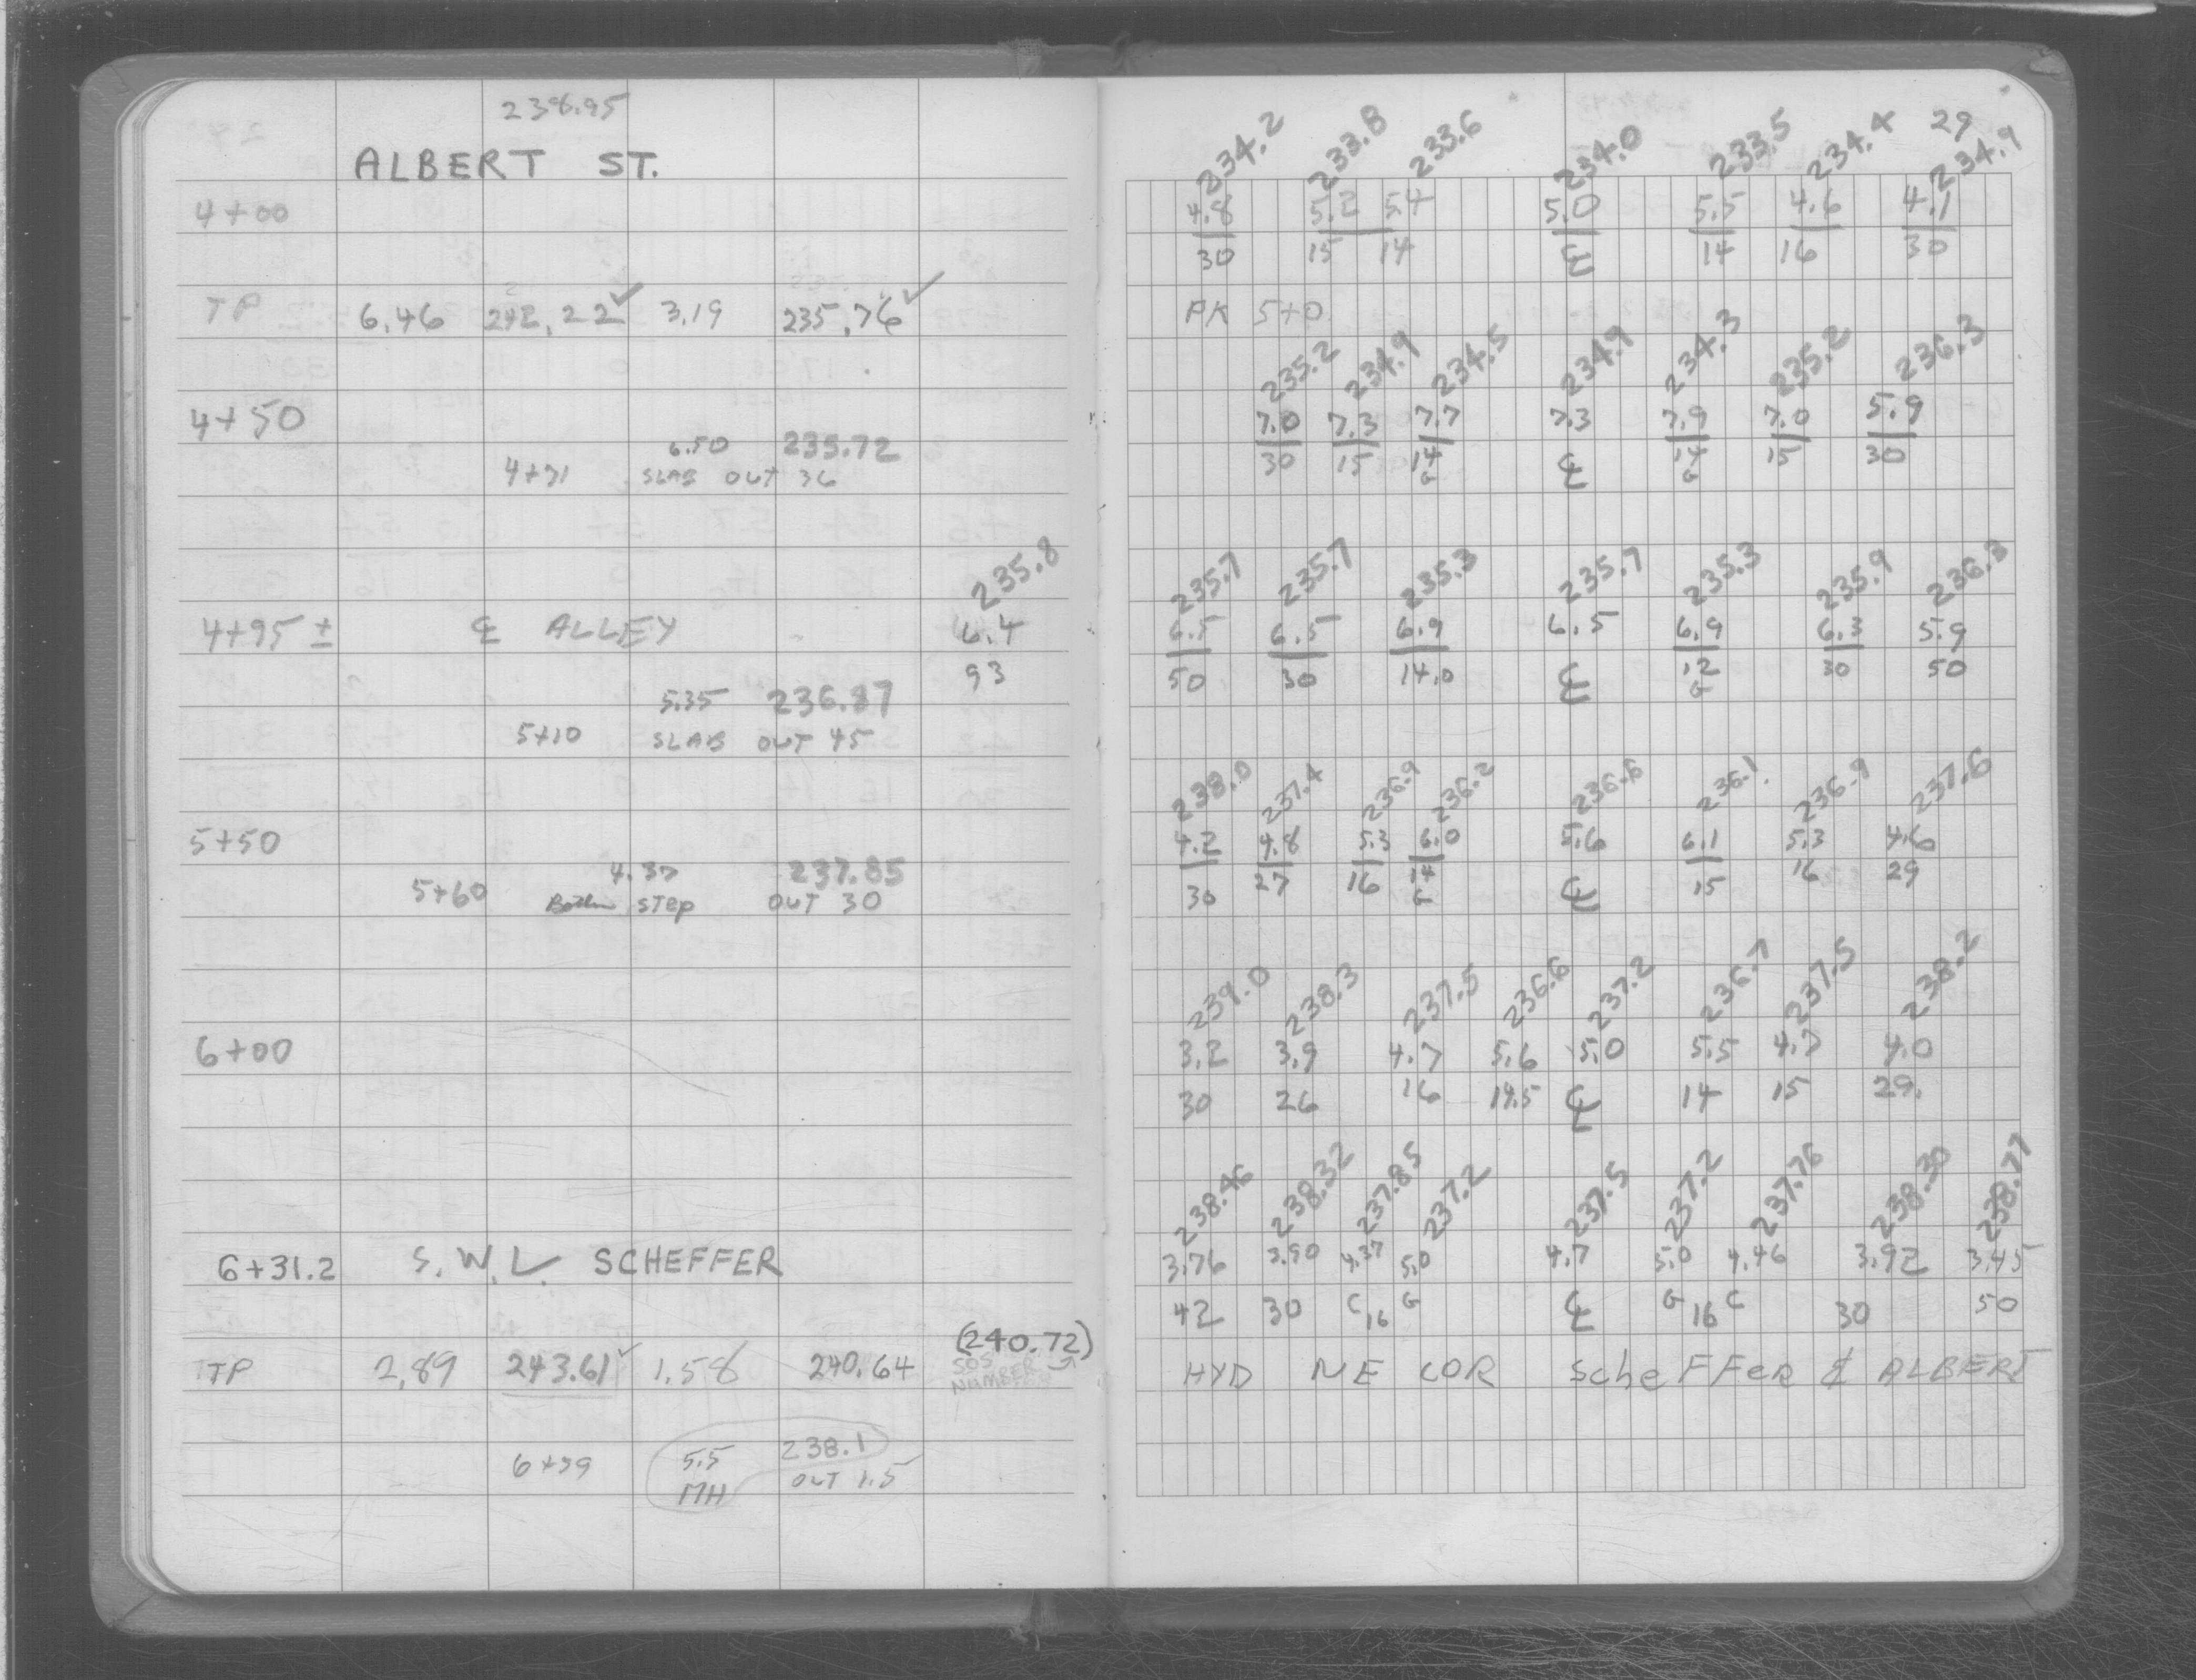 238.95
ALBERT ST.
4+00
TP 6.46 242.22✓ 3.19 235.76✓
4+50
6.50 235.72
4+71 SLAB OUT 36
235.8
4+95 ± ℄ ALLEY 6.4
93
5.35 236.87
5+10 SLAB OUT 45
5+50
4.37 237.85
5+60 Bottom STEP OUT 30
6+00
6+31.2 S.W.L. SCHEFFER
(240.72)
TP 2.89 243.61✓ 1.58 240.64 SDS NUMBER
5.5 238.1
6+39 MH OUT 1.5
29
234.2 233.8 233.6 234.0 233.5 234.4 234.9
4.8 5.2 5.4 5.0 5.5 4.6 4.1
30 15 14 ℄ 14 16 30
PK 5+0
235.2 234.9 234.5 234.9 234.3 235.2 236.3
7.0 7.3 7.7 7.3 7.9 7.0 5.9
30 15 14 ℄ 14 15 30
G G
235.7 235.7 235.3 235.7 235.3 235.9 236.3
6.5 6.5 6.9 6.5 6.9 6.3 5.9
50 30 14.0 ℄ 12 30 50
G
238.0 237.4 236.9 236.2 236.6 236.1 236.9 237.6
4.2 4.8 5.3 6.0 5.6 6.1 5.3 4.6
30 27 16 14 ℄ 15 16 29
G
239.0 238.3 237.5 236.6 237.2 236.7 237.5 238.2
3.2 3.9 4.7 5.6 5.0 5.5 4.7 4.0
30 26 16 14.5 ℄ 14 15 29.
238.46 238.32 237.85 237.2 237.5 237.2 237.76 238.30 238.77
3.76 3.90 4.37 5.0 4.7 5.0 4.46 3.92 3.45
42 30 C 16 G ℄ G 16 C 30 50
HYD NE COR ScheFFeR & ALBERT